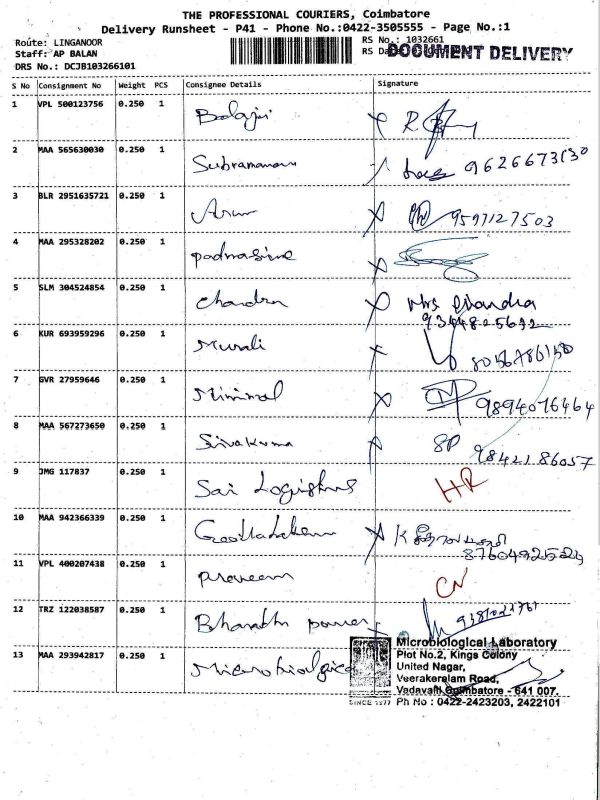 THE PROFESSIONAL COURIERS, Coimbatore
Delivery Runsheet - P41 - Phone No.:0422-3505555 - Page No.:1
Route: LINGANOOR
RS No.: 1032661
Staff: AP BALAN
RS Da
DOCUMENT DELIVERY
DRS No.: DCJB103266101
S No Consignment No Weight PCS Consignee Details Signature
1 VPL 500123756 0.250 1 Balaji
2 MAA 565630030 0.250 1 Subramanam 9626673130
3 BLR 2951635721 0.250 1 Arun 9597127503
4 MAA 295328202 0.250 1 padmasine
5 SLM 304524854 0.250 1 Chandra Mrs Chandra
9344825692
6 KUR 693959296 0.250 1 Murali 8056786150
7 GVR 27959646 0.250 1 Minimol 9894076464
8 MAA 567273650 0.250 1 Sivakuma SP 9842186057
9 JMG 117837 0.250 1 Sai Logistics HR
10 MAA 942366339 0.250 1 K
11 VPL 400207438 0.250 1 praveen CN
12 TRZ 122038587 0.250 1 Bharath power
13 MAA 293942817 0.250 1 Microbiological
Microbiological Laboratory
Plot No.2, Kings Colony
United Nagar,
Veerakeralam Road,
Vadavalli Coimbatore - 641 007.
SINCE 1977 Ph No : 0422-2423203, 2422101